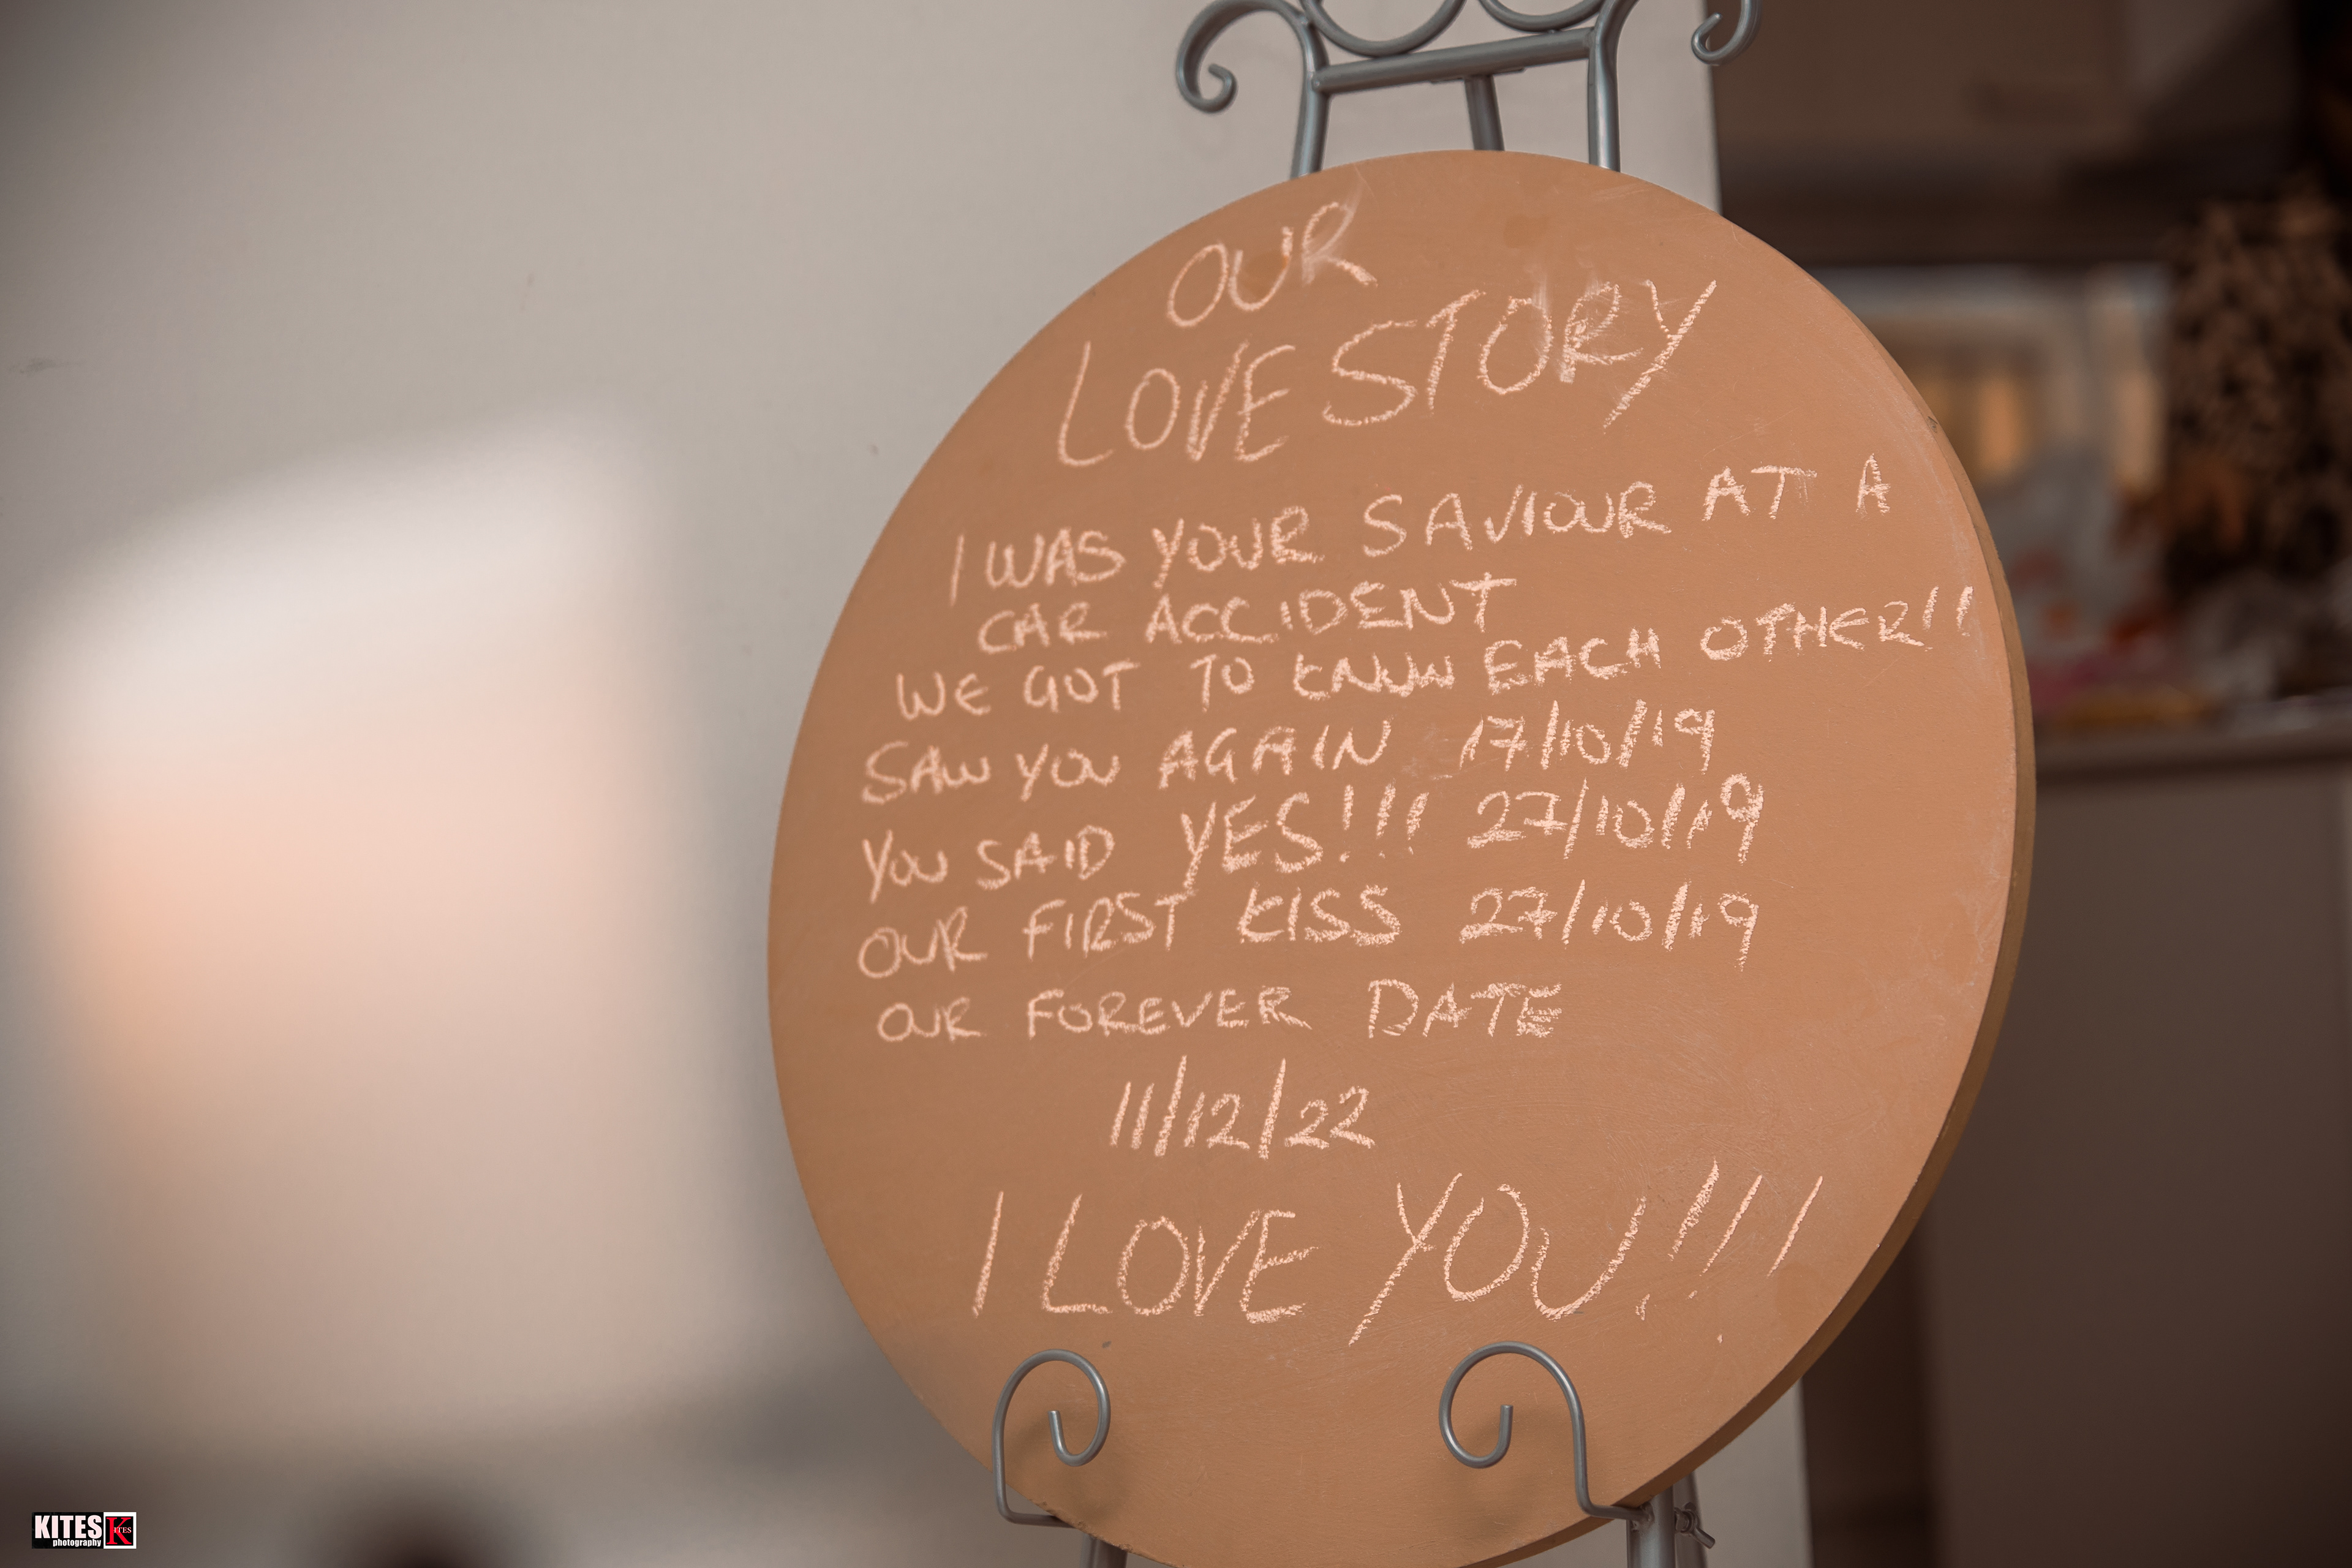 OUR
LOVE STORY
I WAS YOUR SAVIOUR AT A
CAR ACCIDENT
WE GOT TO KNOW EACH OTHER!!
SAW YOU AGAIN 17/10/19
YOU SAID YES!!! 27/10/19
OUR FIRST KISS 27/10/19
OUR FOREVER DATE
11/12/22
I LOVE YOU!!!
KITES
photography
KITES